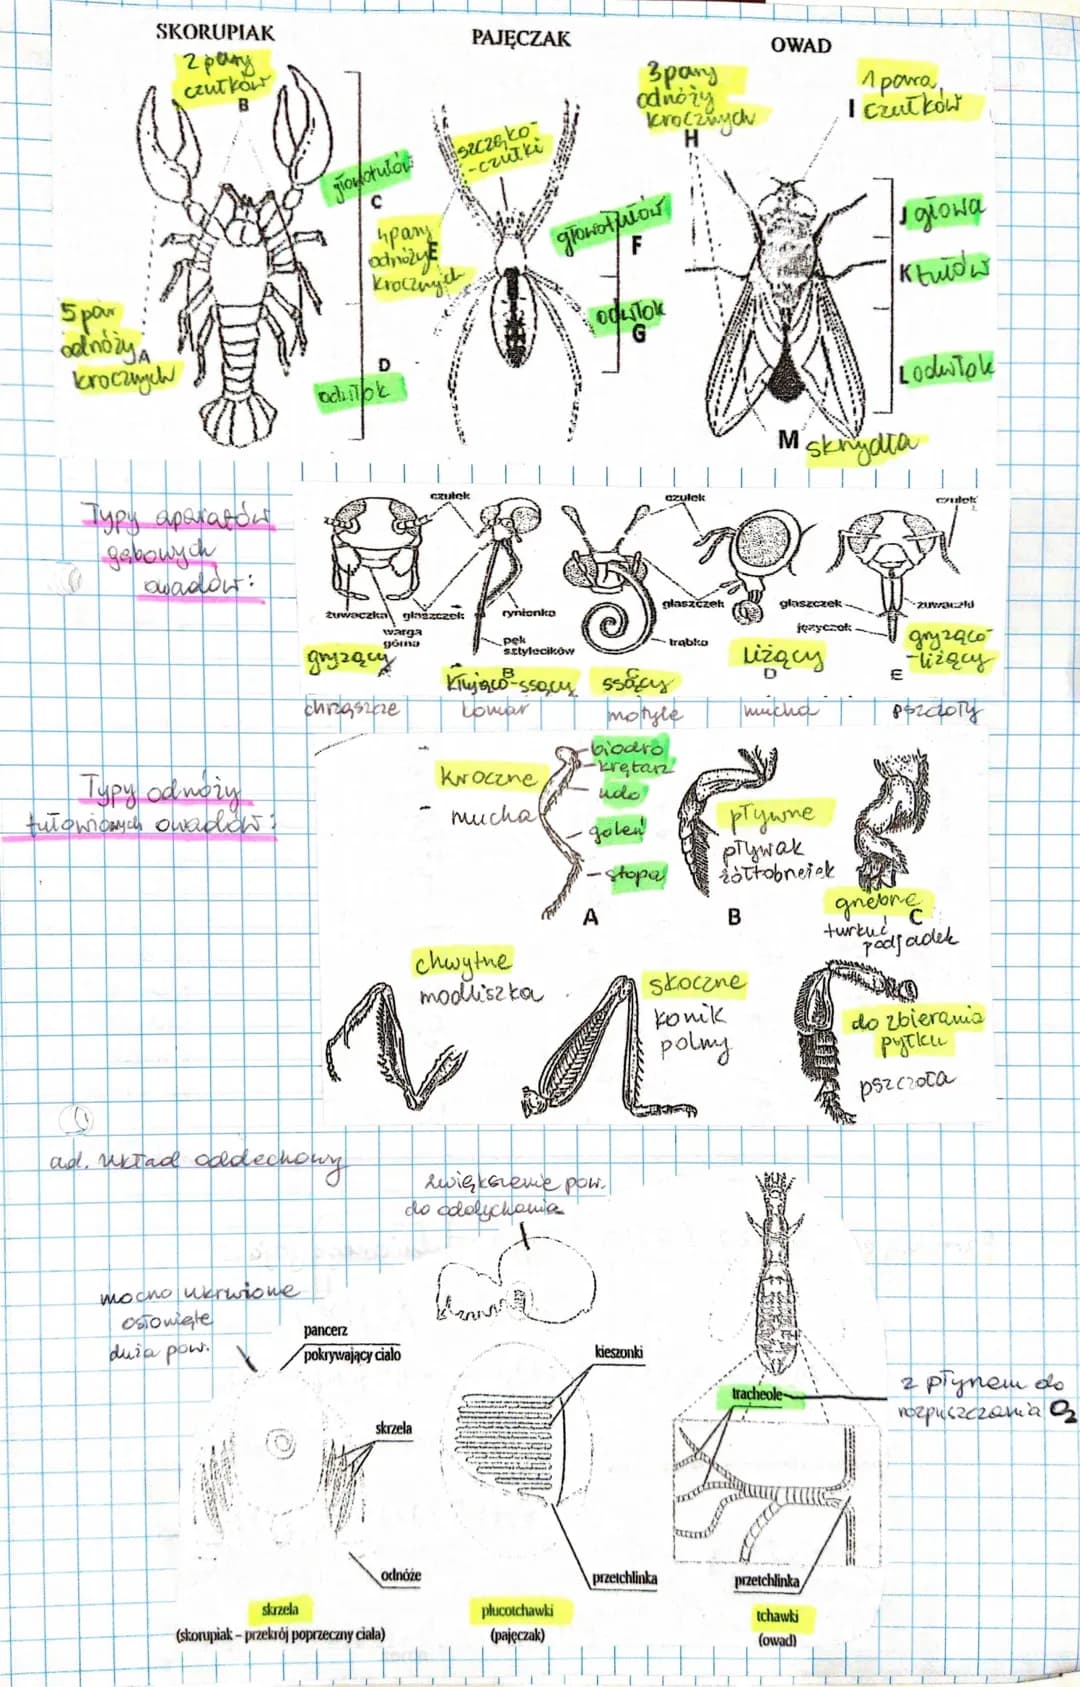 SKORUPIAK
PAJĘCZAK
OWAD
2 pary
czułków
B
5 par
odnóży
A
krocznych
głowotułów
C
D
odwłok
szczęko-
-czułki
4 pary
odnóży E
krocznych
głowotułów
F
odwłok
G
3 pary
odnóży
krocznych
H
1 para
I czułków
J głowa
K tułów
L odwłok
M skrzydła
Typy aparatów
gębowych
owadów:
czułek
czułek
czułek
żuwaczka
głaszczek
warga
górna
rynienka
pęk
sztylecików
głaszczek
trąbka
głaszczek
żuwaczki
języczek
gryzący
A
B
kłująco-ssący
C
ssący
Liżący
D
gryząco-
-liżący
E
chrząszcze
komar
motyle
mucha
pszczoły
Typy odnóży
tułowiowych owadów:
kroczne
- mucha
biodro
krętarz
udo
goleń
stopa
A
pływne
pływak
żółtobrzeżek
B
grzebne
C
turkuć
podjadek
chwytne
modliszka
skoczne
konik
polny
do zbierania
pyłku
pszczoła
ad. układ oddechowy
zwiększenie pow.
do oddychania
mocno ukrwione
osłonięte
duża pow.
pancerz
pokrywający ciało
skrzela
odnóże
skrzela
(skorupiak – przekrój poprzeczny ciała)
kieszonki
przetchlinka
płucotchawki
(pajęczak)
tracheole
z płynem do
rozpuszczania O2
przetchlinka
tchawki
(owad)